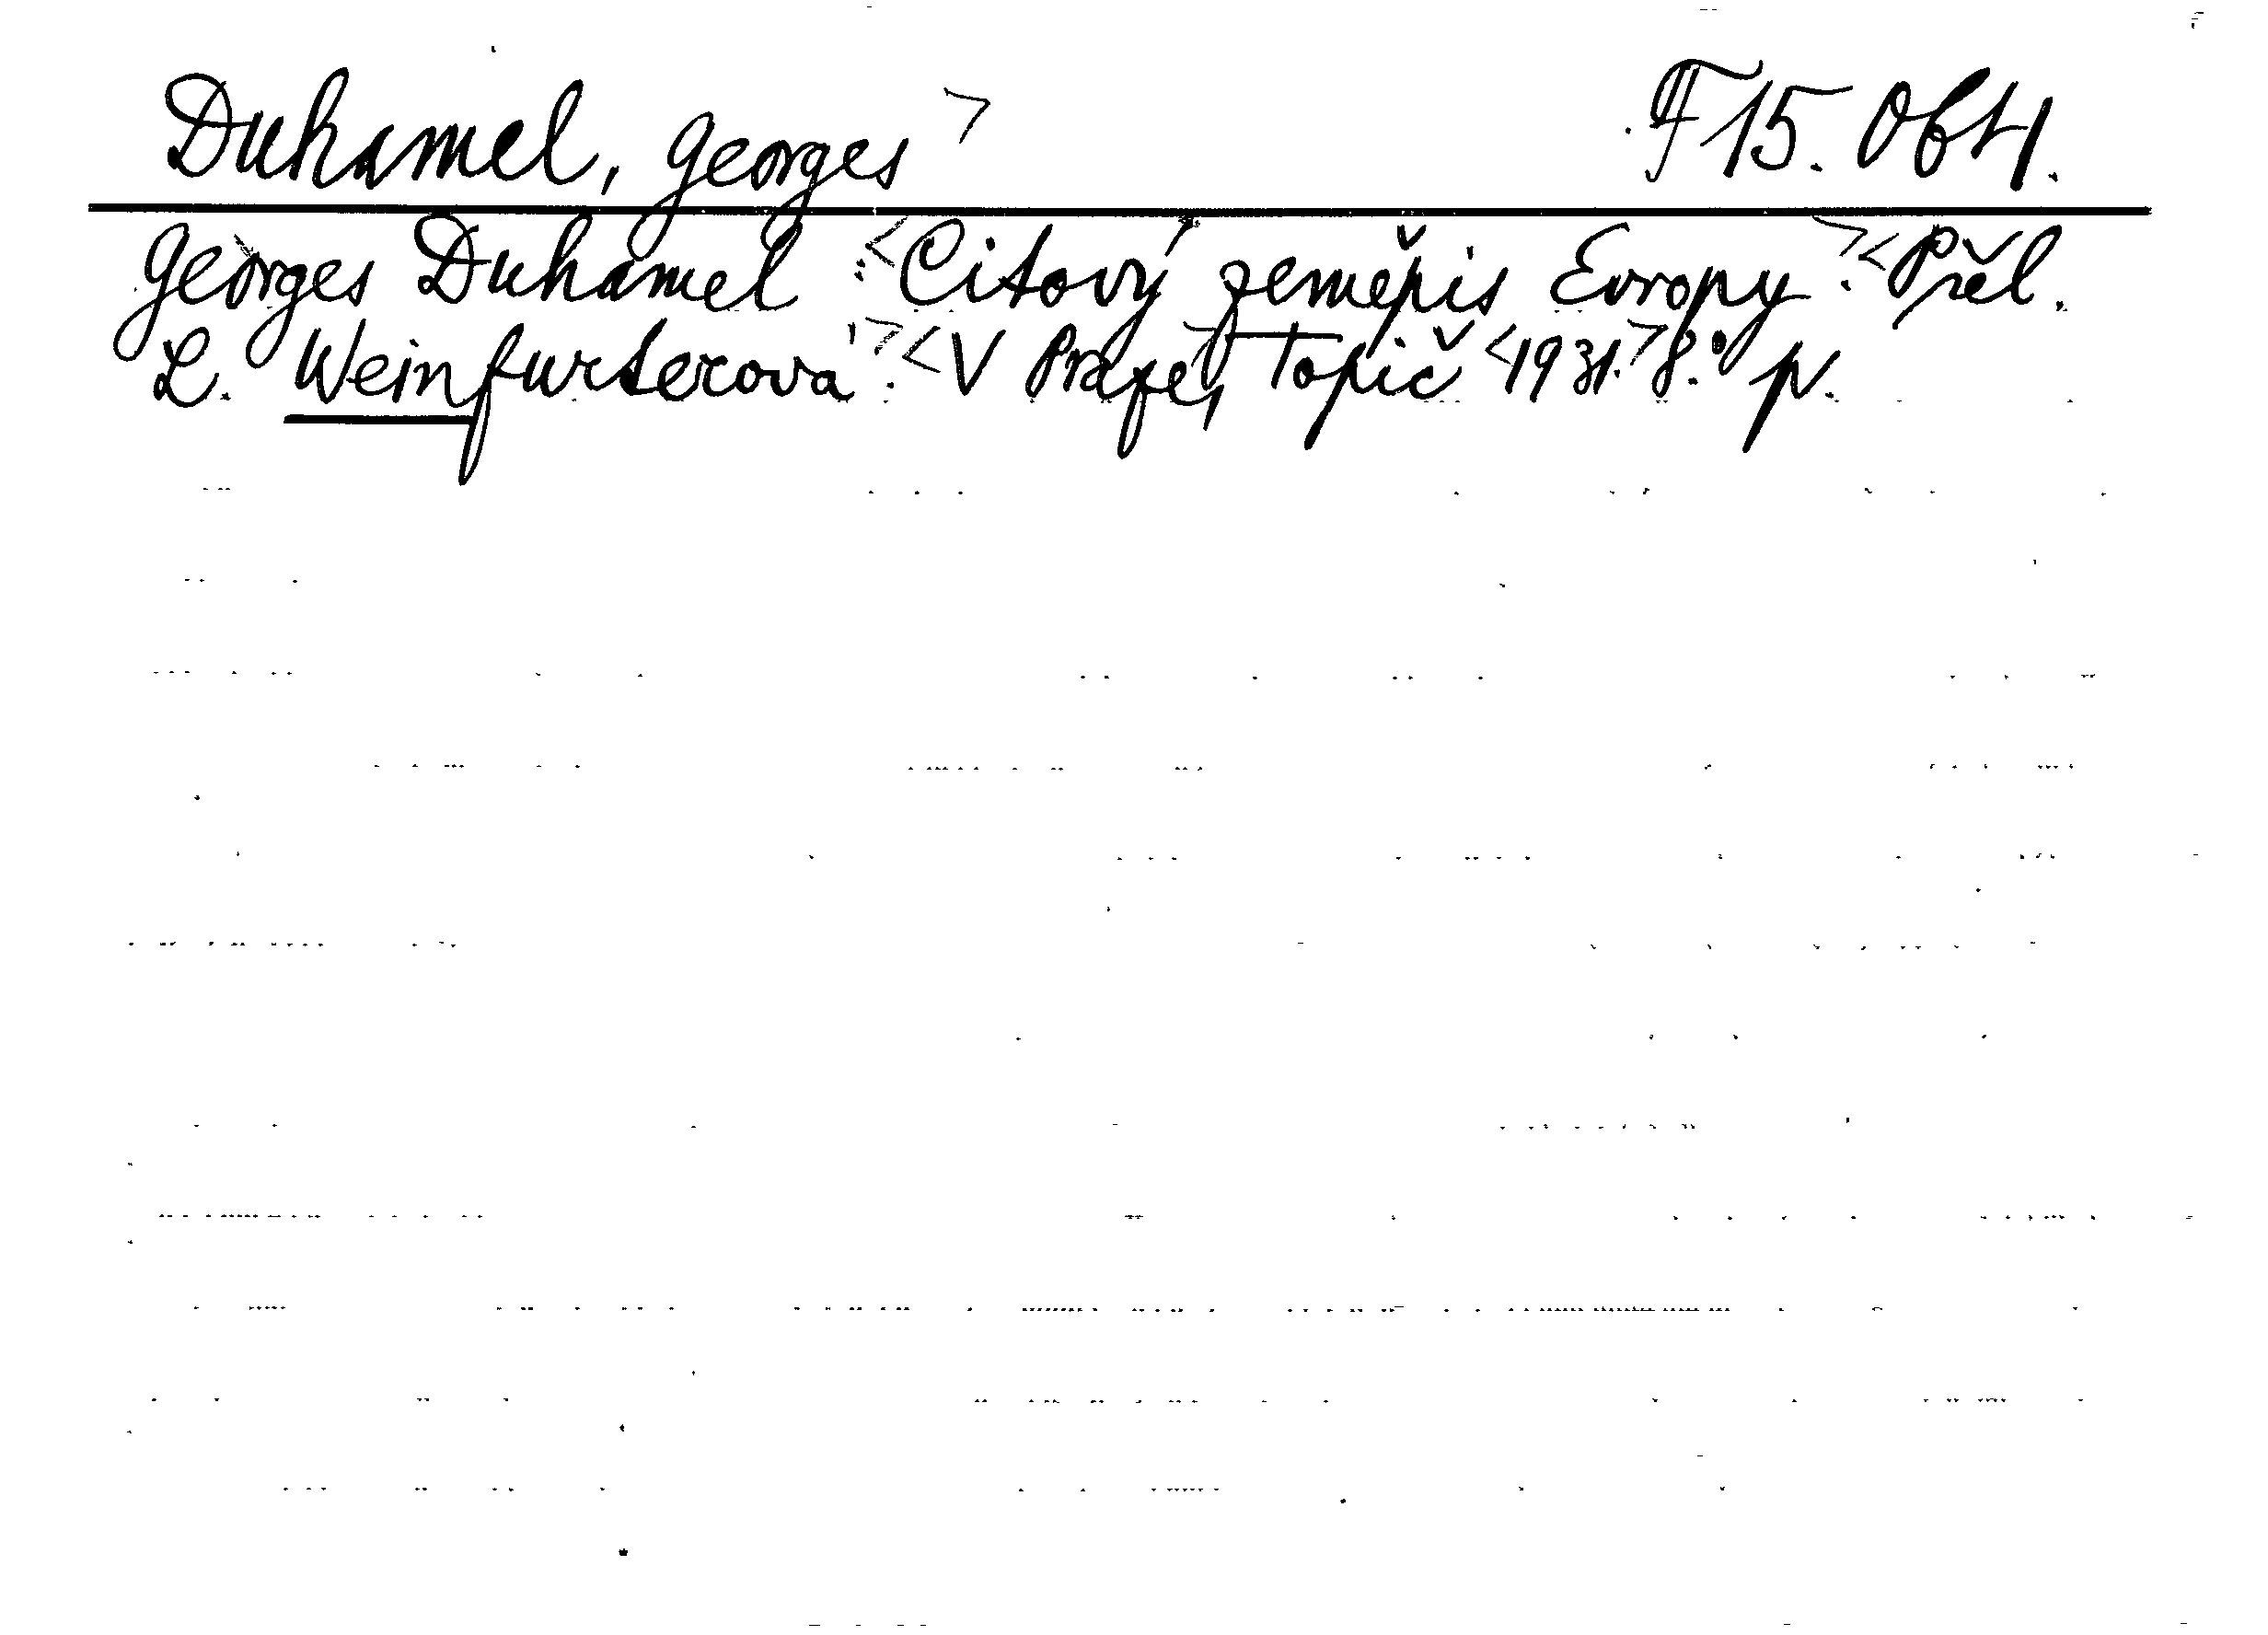 Duhamel, Georges> F 15.064.
Georges Duhamel :<Citový zeměpis Evropy>.<Přel.
L. Weinfurterová.><V Praze, Topič <1931.>8.° p.